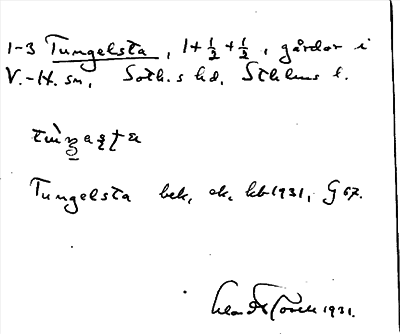 1-3 Tungelsta, 1+½+½, gårdar i
V.-H. sn, Soth.s hd, Sthlms l.
Tungelsta bek, ek, kb 1931, G 67.
1931.